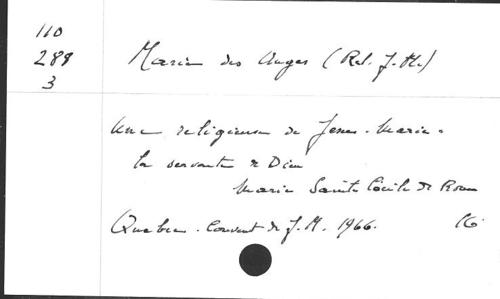 110
288
3
Marie des Anges (Rel. J. M.)
Une religieuse de Jésus-Marie.
la servante de Dieu
Marie Sainte Cécile de Rome
Quebec. Couvent de J. M. 1966.